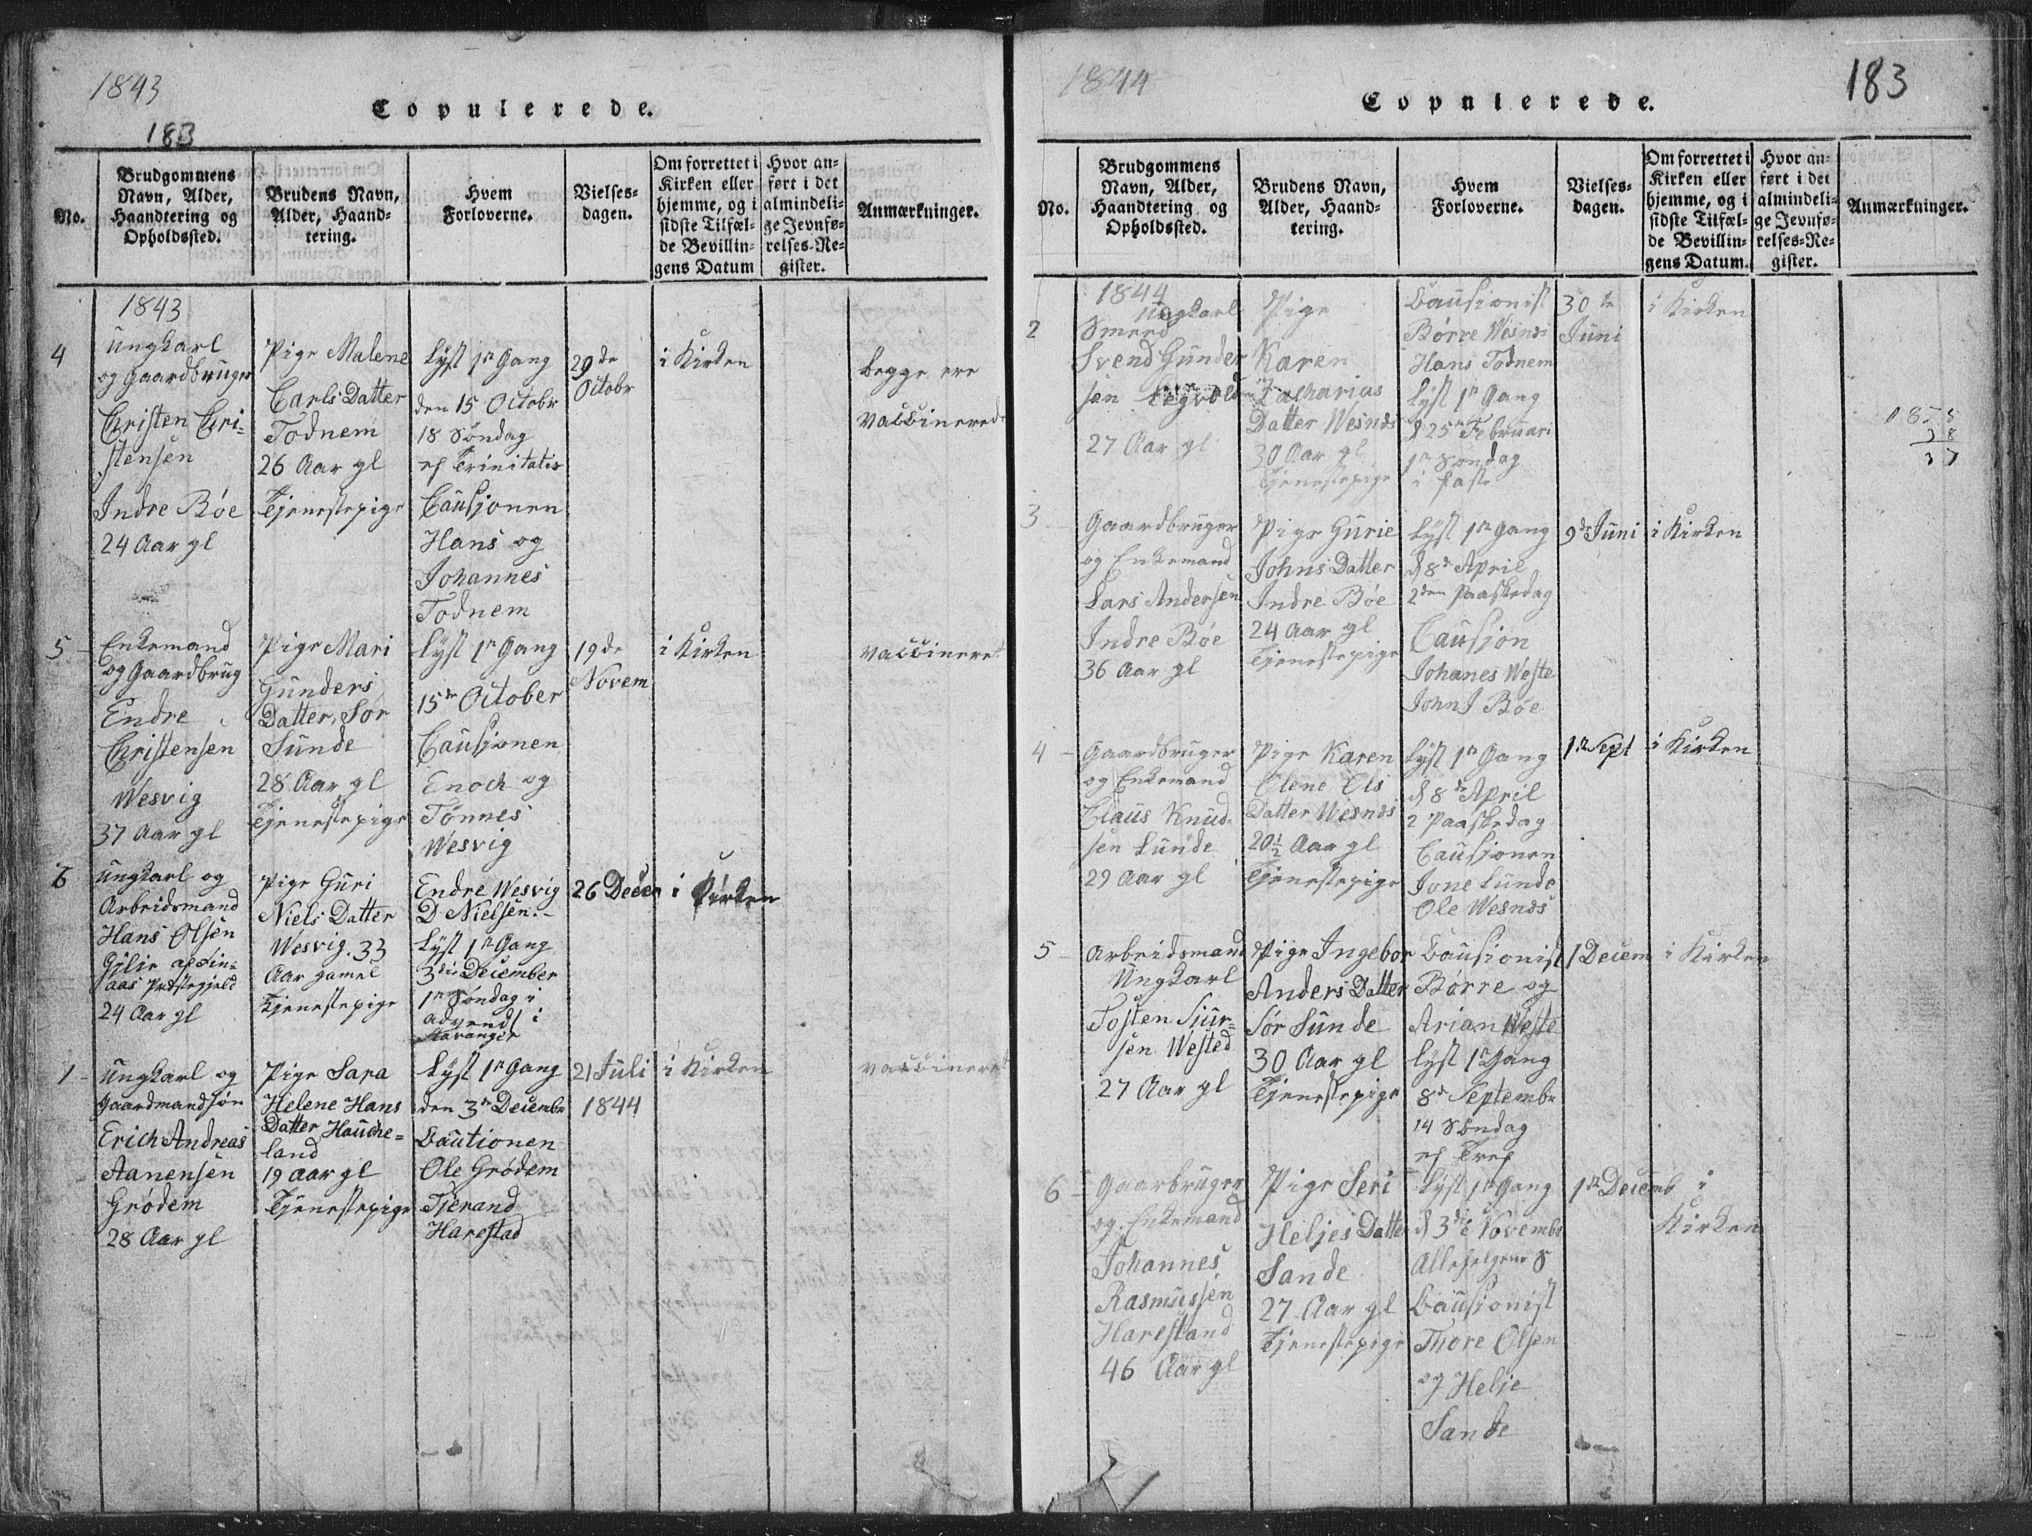 1843
183
Copulerede.
No.
Brudgommens
Navn, Alder,
Haandtering og
Opholdssted.
Brudens Navn,
Alder, Haand-
tering.
Hvem
Forloverne.
Vielses-
dagen.
Om forrettet i
Kirken eller
hjemme, og i
sidste Tilfæl-
de Bevillin-
gens Datum
Hvor an-
ført i det
almindeli-
ge Jevnfø-
relses-Re-
gister.
Anmærkninger.
1843
4
Ungkarl
og Gaardbruger
Christen Chri-
stensen
Indre Bøe
24 Aar gl
Pige Malene
Carls Datter
Todnem
26 Aar gl
Tjenestepige
Lyst 1n Gang
den 15 Octobr
18 Søndag
ef Trinitatis
Causjonen
Hans og
Johannes
Todnem
29de
Octobr
i Kirken
begge ere
vaccinerede
5
Enkemand
og Gaardbrug
Endre
Christensen
Wesvig
37 Aar gl
Pige Mari
Gunders
Datter, Sør
Sunde
28 Aar gl
Tjenestepige
Lyst 1n Gang
15de October
Causjonen
Enoch og
Tønnes
Wesvig
19de
Novem
i Kirken
vaccineret
6
Ungkarl og
Arbeidsmand
Hans Olsen
Præstegjeld
24 Aar gl
Pige Guri
Niels Datter
Wesvig. 33
Aar gamel
Tjenestepige
Endre Wesvig
D Nielsen.-
Lyst 1n Gang
3die December
1n Søndag i
advendt i
Stavanger
26 Decer
i Kirken
7
Ungkarl og
Gaardmandsøn
Erich Andreas
Aanensen
Grødem
28 Aar gl
Pige Sara
Helene Hans
Datter Hauche-
land
19 aar gl
Tjenestepige
Lyst 1n Gang
den 3de Decembr
Cautionen
Ole Grødem
Tjerand
Harestad
21 Juli
1844
i Kirken
vaccineret
1844
183
Copulerede.
No.
Brudgommens
Navn, Alder,
Haandtering og
Opholdssted.
Brudens Navn,
Alder, Haand-
tering.
Hvem
Forloverne.
Vielses-
dagen.
Om forrettet i
Kirken eller
hjemme, og i
sidste Tilfæl-
de Bevillin-
gens Datum.
Hvor an-
ført i det
almindeli-
ge Jevnfø-
relses-Re-
gister.
Anmærkninger.
1844
2
Ungkarl
Smeed
Svend Gunder
sen
27 Aar gl
Pige
Karen
Zacharias
Datter Wesnes
30 Aar gl
Tjenestepige
Causionist
Børre Wesnes
Hans Todnem
Lyst 1n Gang
d 25n Februari
1n Søndag
i faste
30te
Juni
i Kirken
3
Gaardbruger
og Enkemand
Lars Andersen
Indre Bøe
36 Aar gl
Pige Gurie
Johns Datter
Indre Bøe
24 Aar gl
Tjenestepige
Lyst 1n Gang
d 8de April
2den Paaskedag
Causjon
Johanes Weste
John J Bøe
9de Juni
i Kirken
4
Gaardbruger
og Enkemand
Claus Knud-
sen Lunde
29 Aar gl
Pige Karen
Olene Ols
Datter Wesnes
20½ Aar gl
Tjenestepige
Lyst 1n Gang
d 8de April
2 Paaskedag
Causjonen
Jone Lunde
Ole Wesnes
1te Sept
i Kirken
5
Arbeidsmand
Ungkarl
Tosten Siur-
sen Wested
27 Aar gl
Pige Ingebor
Anders Datter
Sør Sunde
30 Aar gl
Tjenestepige
Causionist
Børre og
Arian Weste
Lyst 1n Gang
8de Septembr
14 Søndag
ef Tref
1 Decem
i Kirken
6
Gaarbruger
og Enkemand
Johannes
Rasmussen
Harestand
46 Aar gl
Pige Seri
Heljes Datter
Sande
27 Aar gl
Tjenestepige
Lyst 1n Gang
d 3die Novembr
Allehelgens S
Causionist
Thore Olsen
og Helje
Sande
1te Decemb
i
Kirken